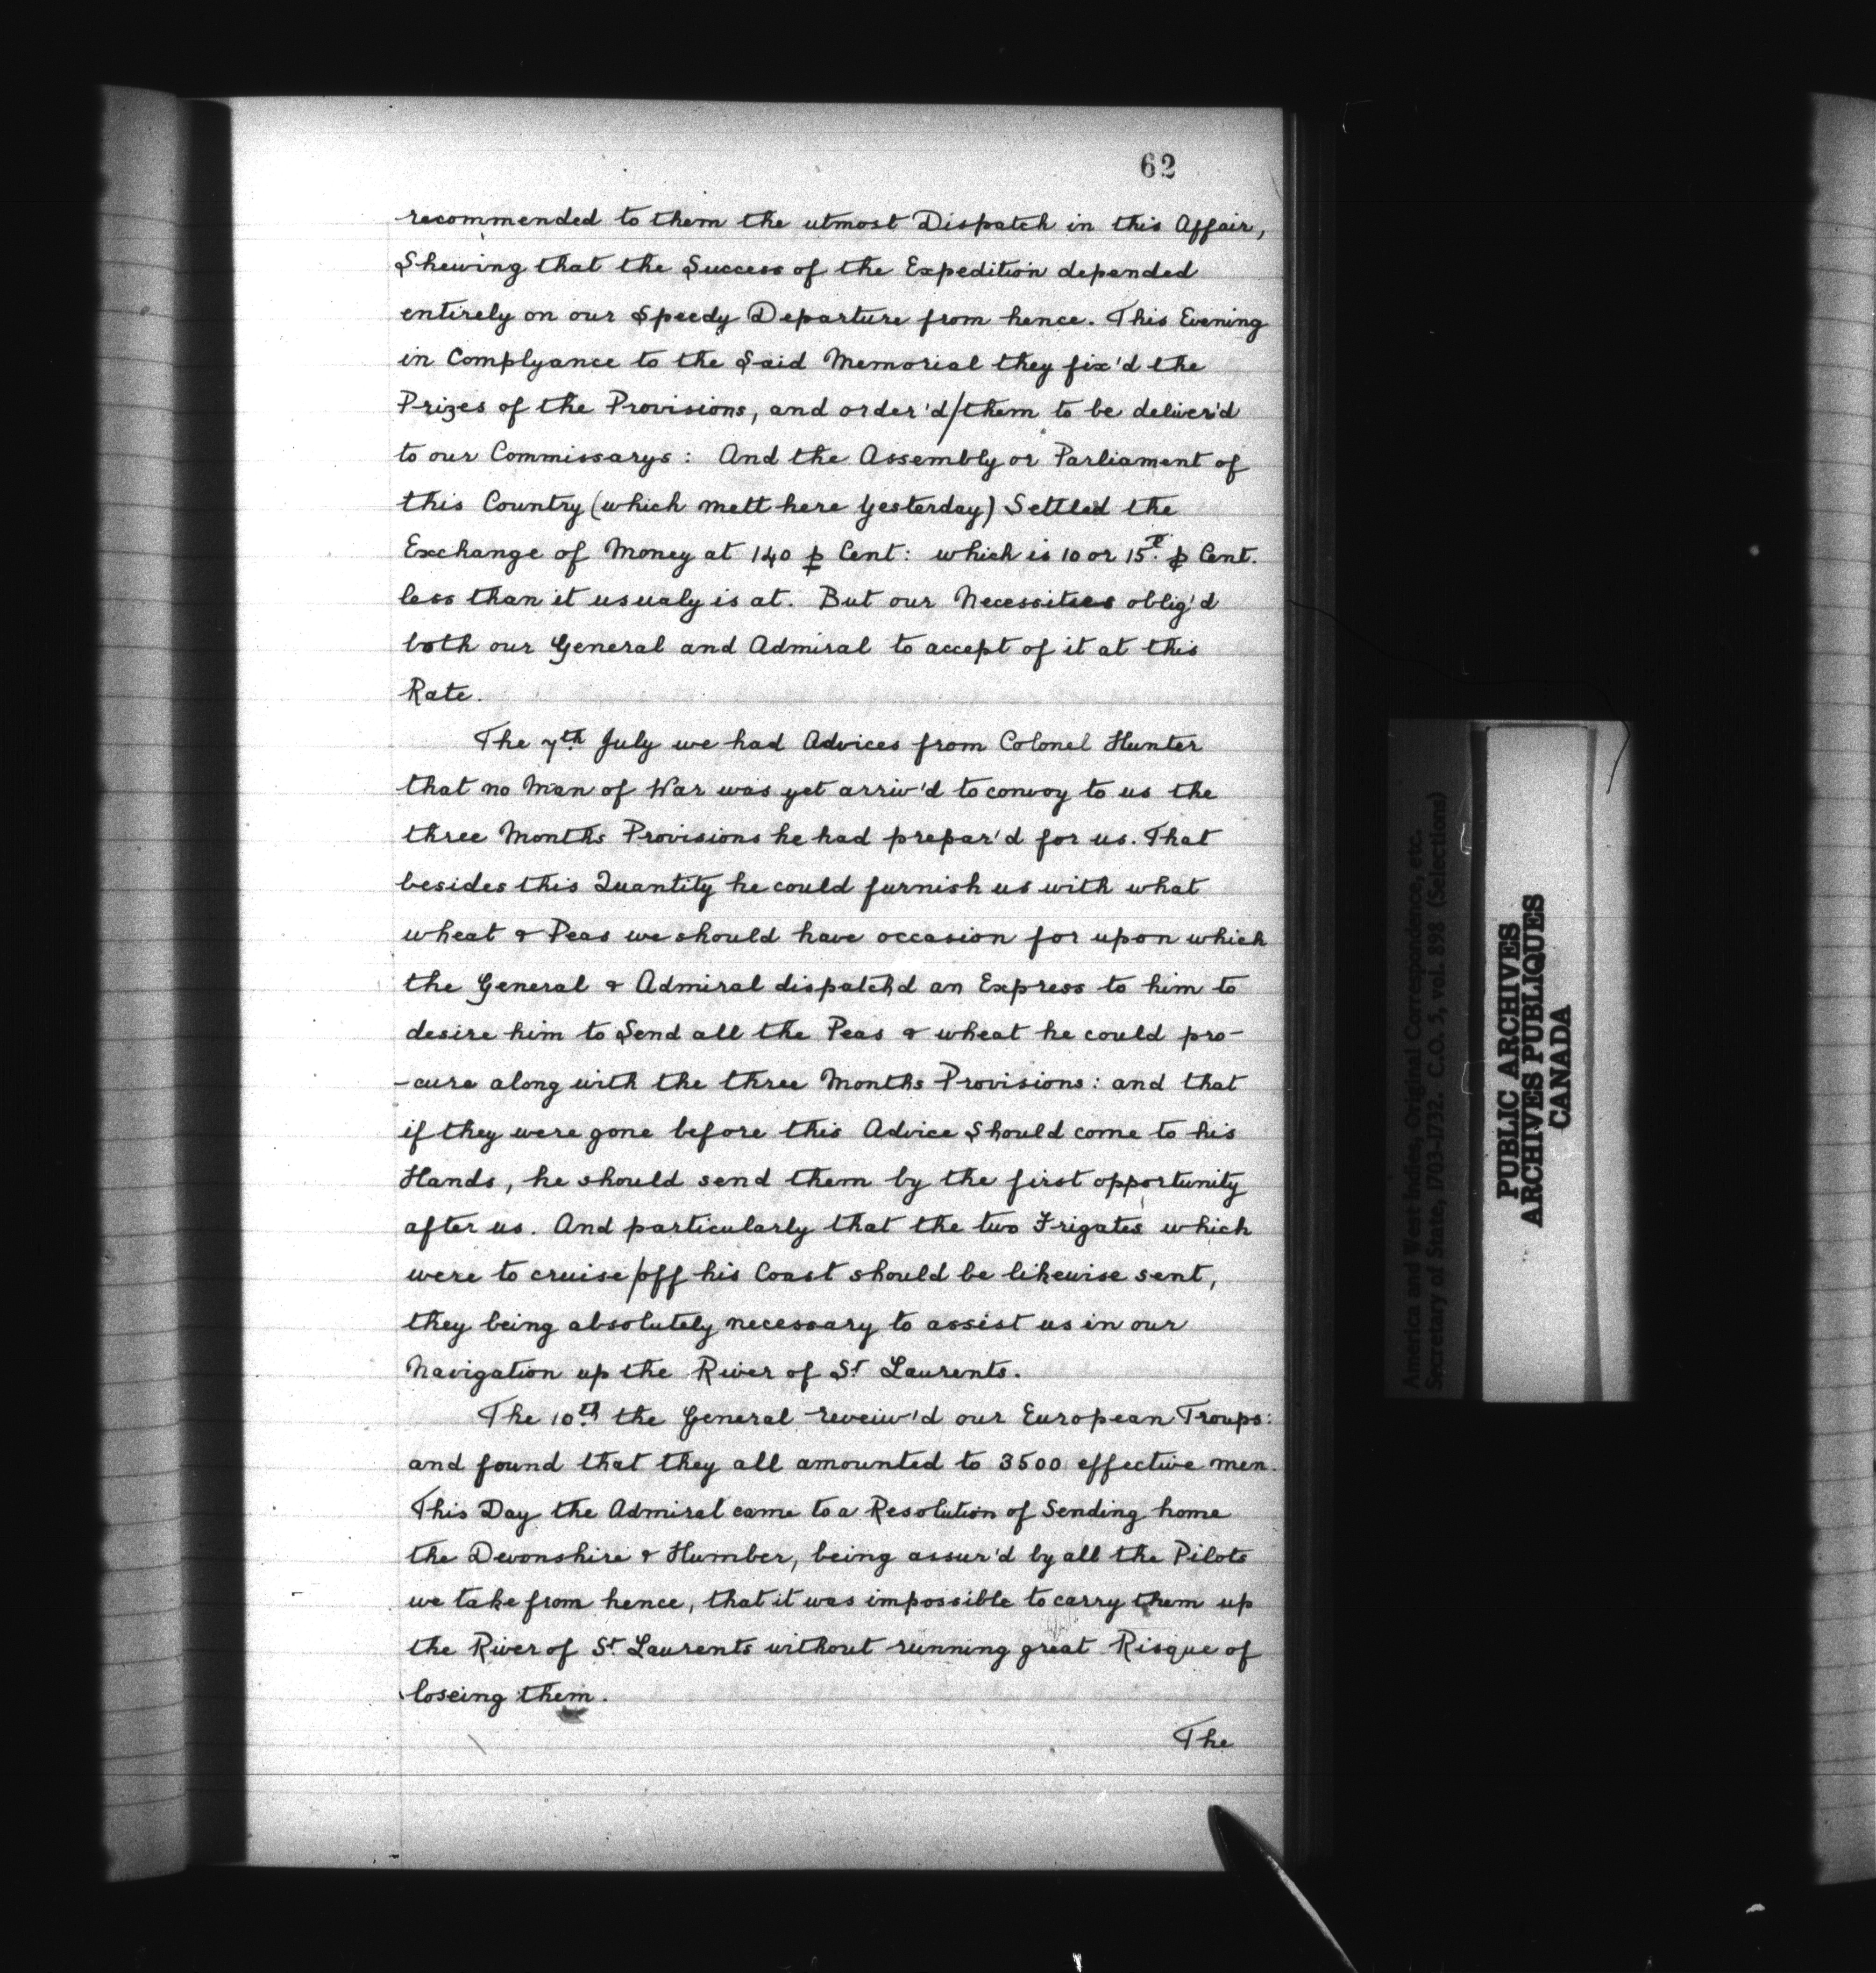 62
recommended to them the utmost Dispatch in this Affair,
Shewing that the Success of the Expedition depended
entirely on our Speedy Departure from hence. This Evening
in Complyance to the Said Memorial they fix'd the
Prizes of the Provisions, and order'd/them to be deliver'd
to our Commissarys: And the Assembly or Parliament of
this Country (which mett here Yesterday) Settled the
Exchange of Money at 140 ꝑ Cent: which is 10 or 15 ꝑ Cent.
less than it usualy is at. But our Necessities oblig'd
both our General and Admiral to accept of it at this
Rate.
The 7th July we had Advices from Colonel Hunter
that no Man of War was yet arriv'd to convoy to us the
three Months Provisions he had prepar'd for us. That
besides this Quantity he could furnish us with what
wheat & Peas we should have occasion for upon which
the General & Admiral dispatch'd an Express to him to
desire him to Send all the Peas & wheat he could pro-
-cure along with the three Months Provisions: and that
if they were gone before this Advice Should come to his
Hands, he should send them by the first opportunity
after us. And particularly that the two Frigates which
were to cruise/off his Coast should be likewise sent,
they being absolutely necessary to assist us in our
Navigation up the River of St Laurents.
The 10th the General reveiw'd our European Troups:
and found that they all amounted to 3500 effective men.
This Day the Admiral came to a Resolution of Sending home
the Devonshire & Humber, being assur'd by all the Pilots
we take from hence, that it was impossible to carry them up
the River of St Laurents without running great Risque of
loseing them.
The
America and West Indies, Original Correspondence, etc.
Secretary of State, 1703-1732. C.O. 5, vol. 898 (Selections)
PUBLIC ARCHIVES
ARCHIVES PUBLIQUES
CANADA